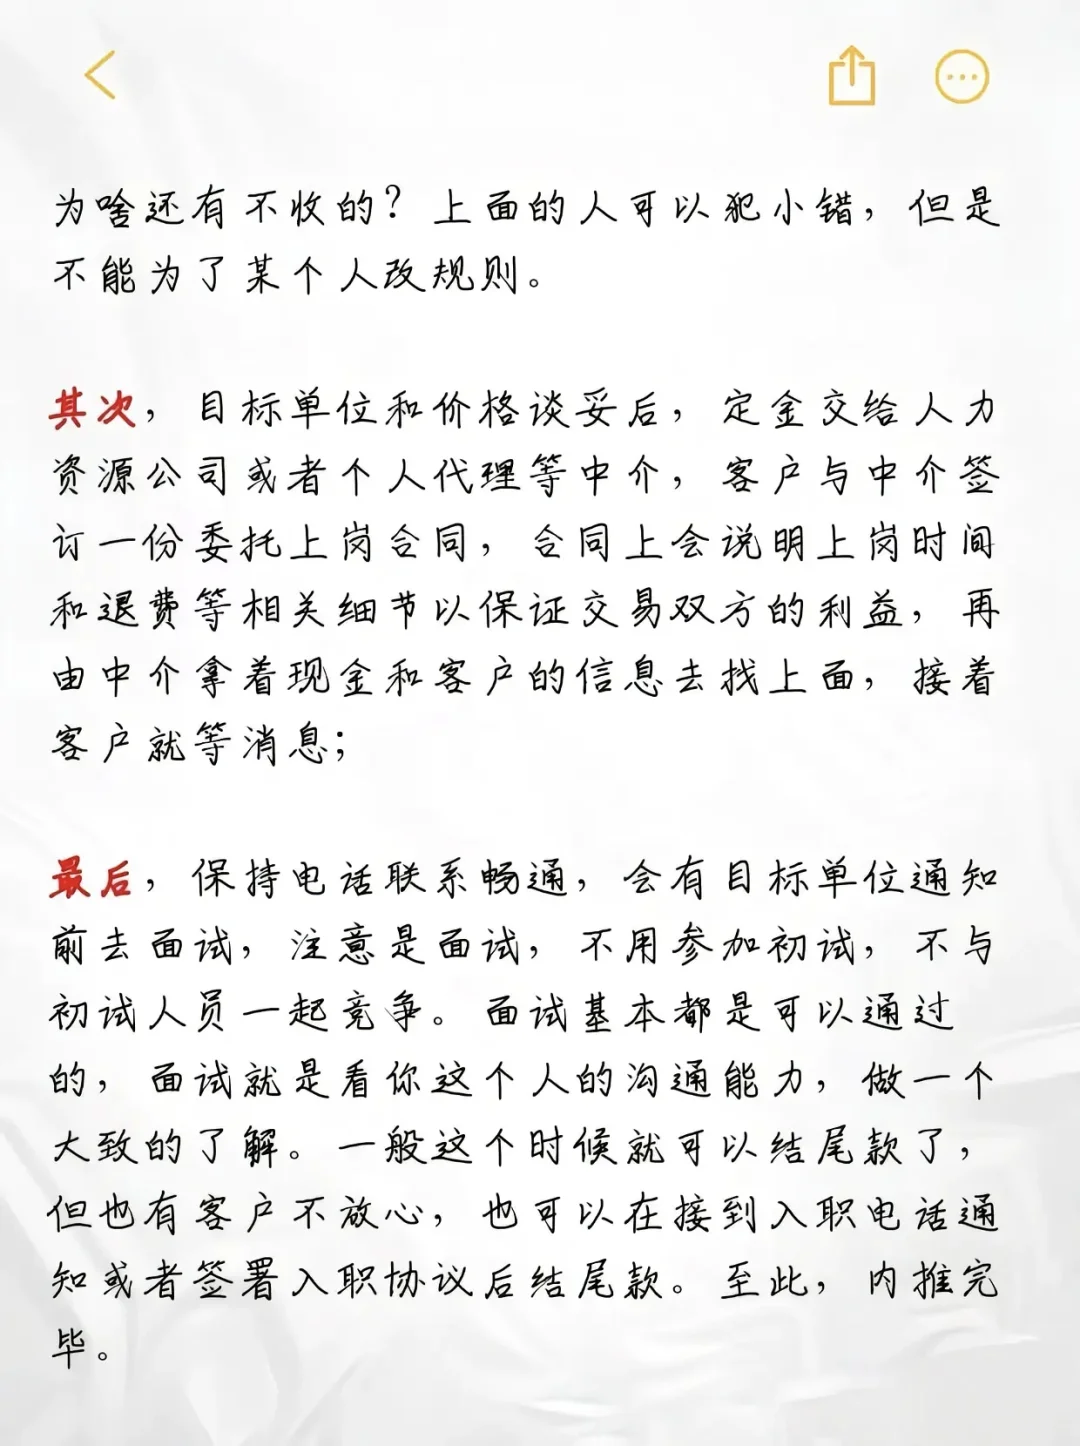 为啥还有不收的？上面的人可以犯小错，但是
不能为了某个人改规则。
其次，目标单位和价格谈妥后，定金交给人力
资源公司或者个人代理等中介，客户与中介签
订一份委托上岗合同，合同上会说明上岗时间
和退费等相关细节以保证交易双方的利益，再
由中介拿着现金和客户的信息去找上面，接着
客户就等消息；
最后，保持电话联系畅通，会有目标单位通知
前去面试，注意是面试，不用参加初试，不与
初试人员一起竞争。面试基本都是可以通过
的，面试就是看你这个人的沟通能力，做一个
大致的了解。一般这个时候就可以结尾款了，
但也有客户不放心，也可以在接到入职电话通
知或者签署入职协议后结尾款。至此，内推完
毕。